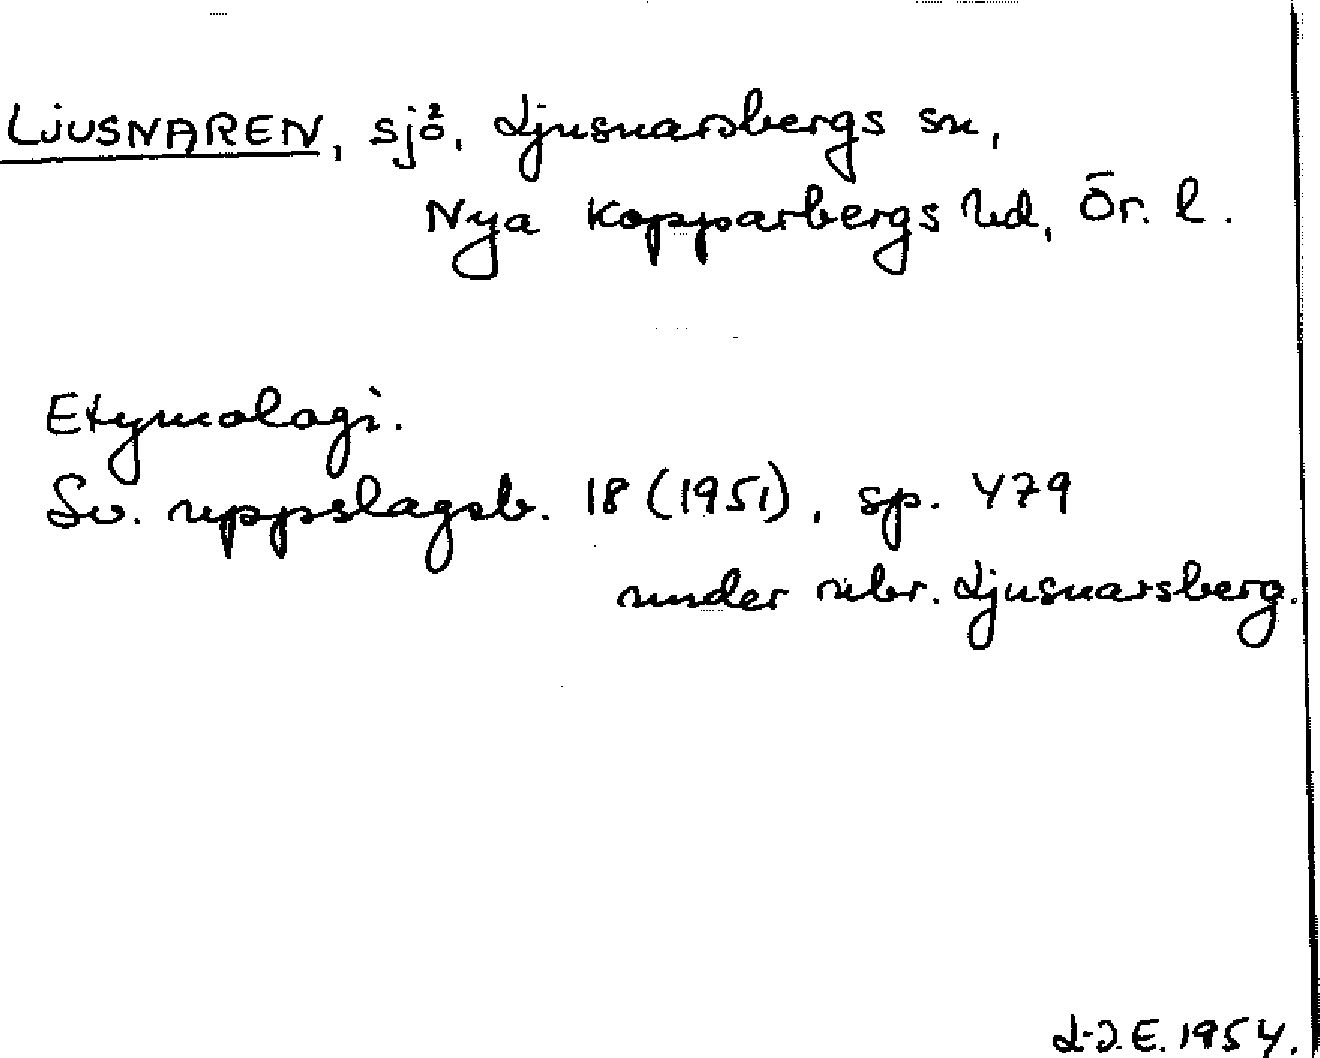 LJUSNAREN, sjö, Ljusnarsbergs sn,
Nya Kopparbergs hd, Ör. l.
Etymologi.
Sv. uppslagsb. 18 (1951), sp. 479
under rubr. Ljusnarsberg.
L-J.E. 1954.